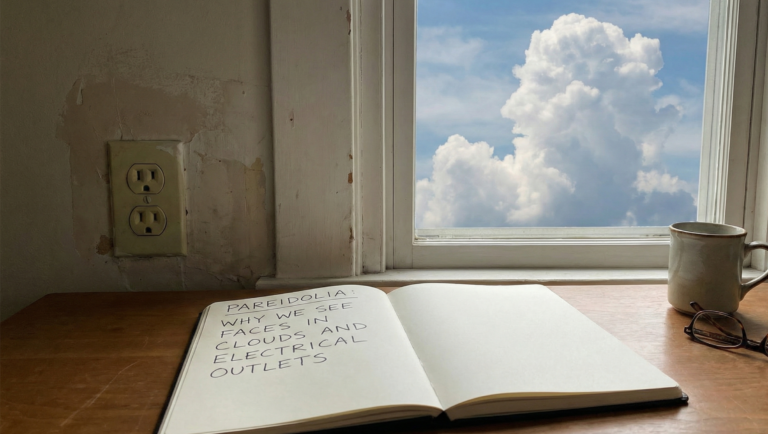 PAREIDOLIA:
WHY WE SEE
FACES IN
CLOUDS AND
ELECTRICAL
OUTLETS